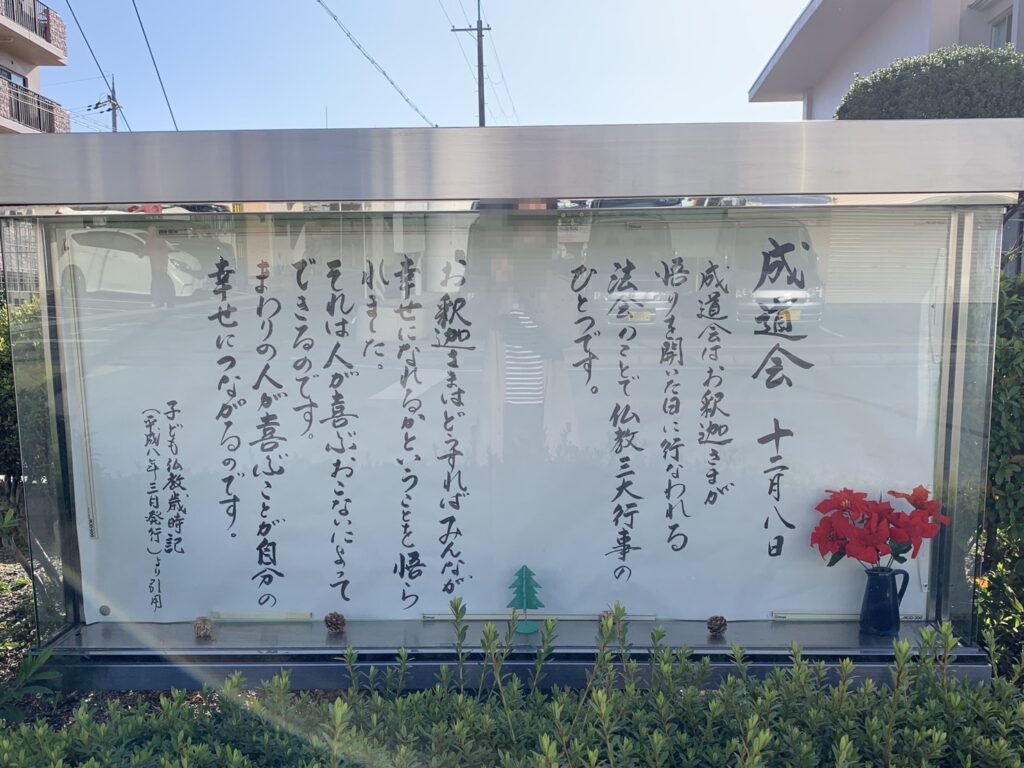 成道会 十二月八日
成道会はお釈迦さまが
悟りを開いた日に行なわれる
法会のことで仏教三大行事の
ひとつです。
お釈迦さまはどうすればみんなが
幸せになれるかということを悟ら
れました。
それは人が喜ぶおこないによって
できるのです。
まわりの人が喜ぶことが自分の
幸せにつながるのです。
子ども仏教歳時記
（平成八年三月発行）より引用